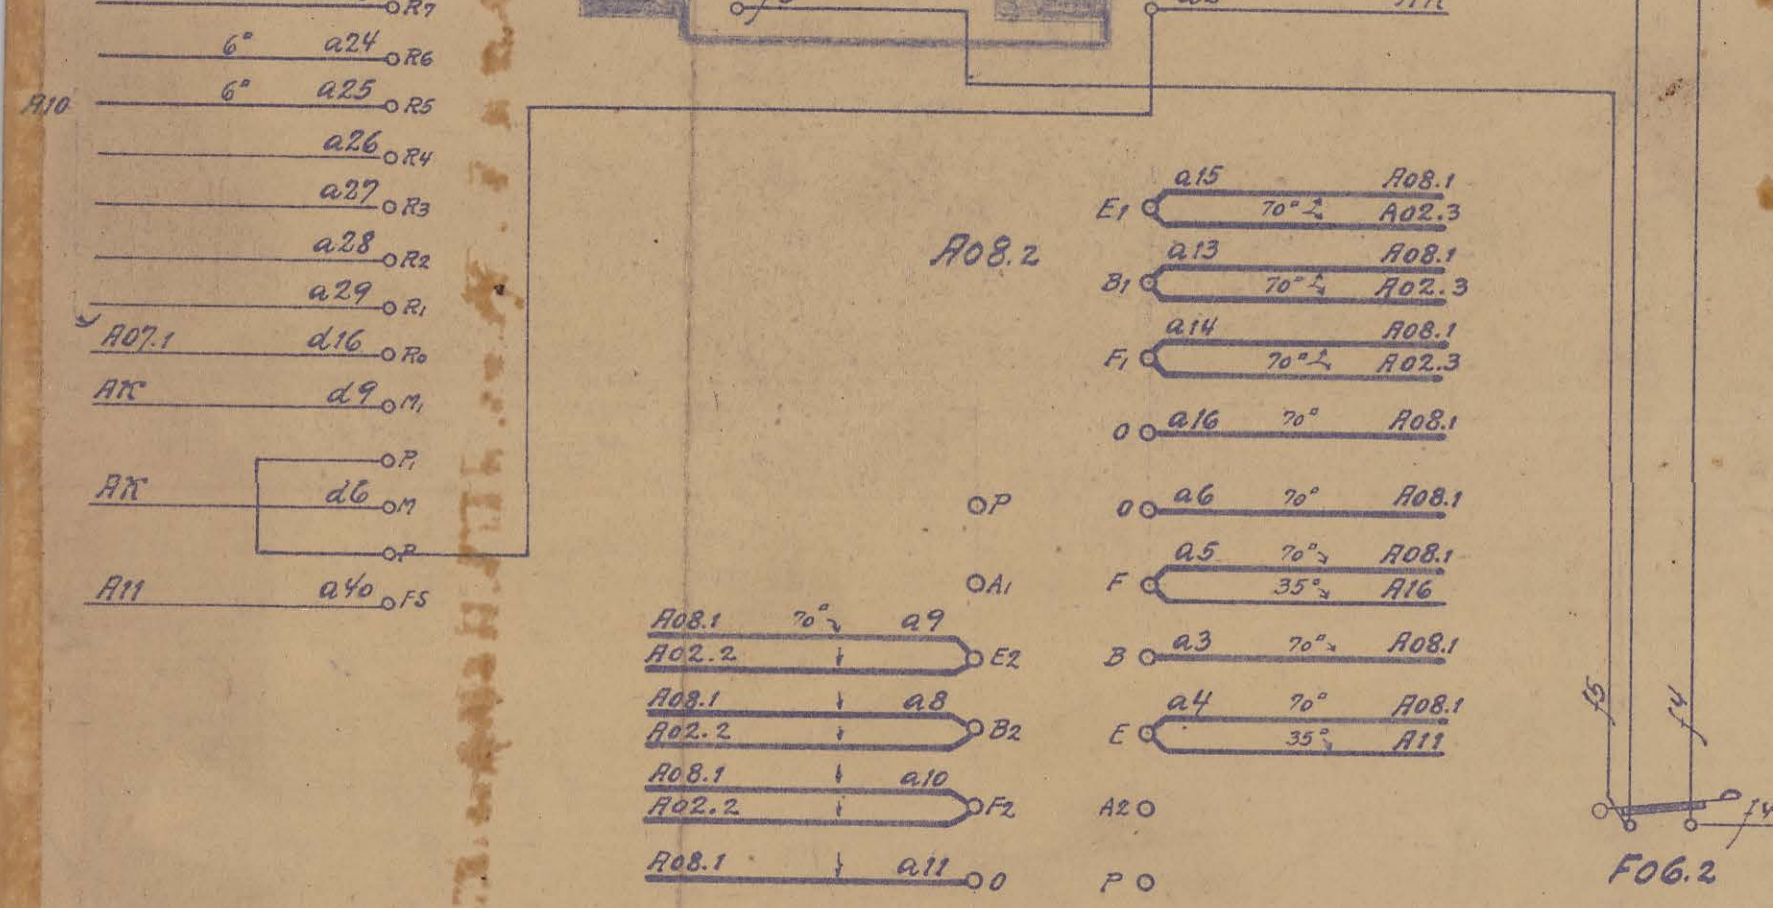 R7
6° a24 R6
A10 6° a25 R5
a26 R4
a27 R3
a28 R2
a29 R1
A07.1 d16 R0
AK d9 M1
P1
AK d6 M
P
A11 a40 FS
A08.2
a15 A08.1
E1 70° A02.3
a13 A08.1
B1 70° A02.3
a14 A08.1
F1 70° A02.3
0 a16 70° A08.1
P
0 a6 70° A08.1
A1
a5 70° A08.1
F 35° A16
B a3 70° A08.1
a4 70° A08.1
E 35° A11
A2
P
A08.1 70° a9
A02.2 E2
A08.1 a8
A02.2 B2
A08.1 a10
A02.2 F2
A08.1 a11 0
f5
f4
f4
F06.2